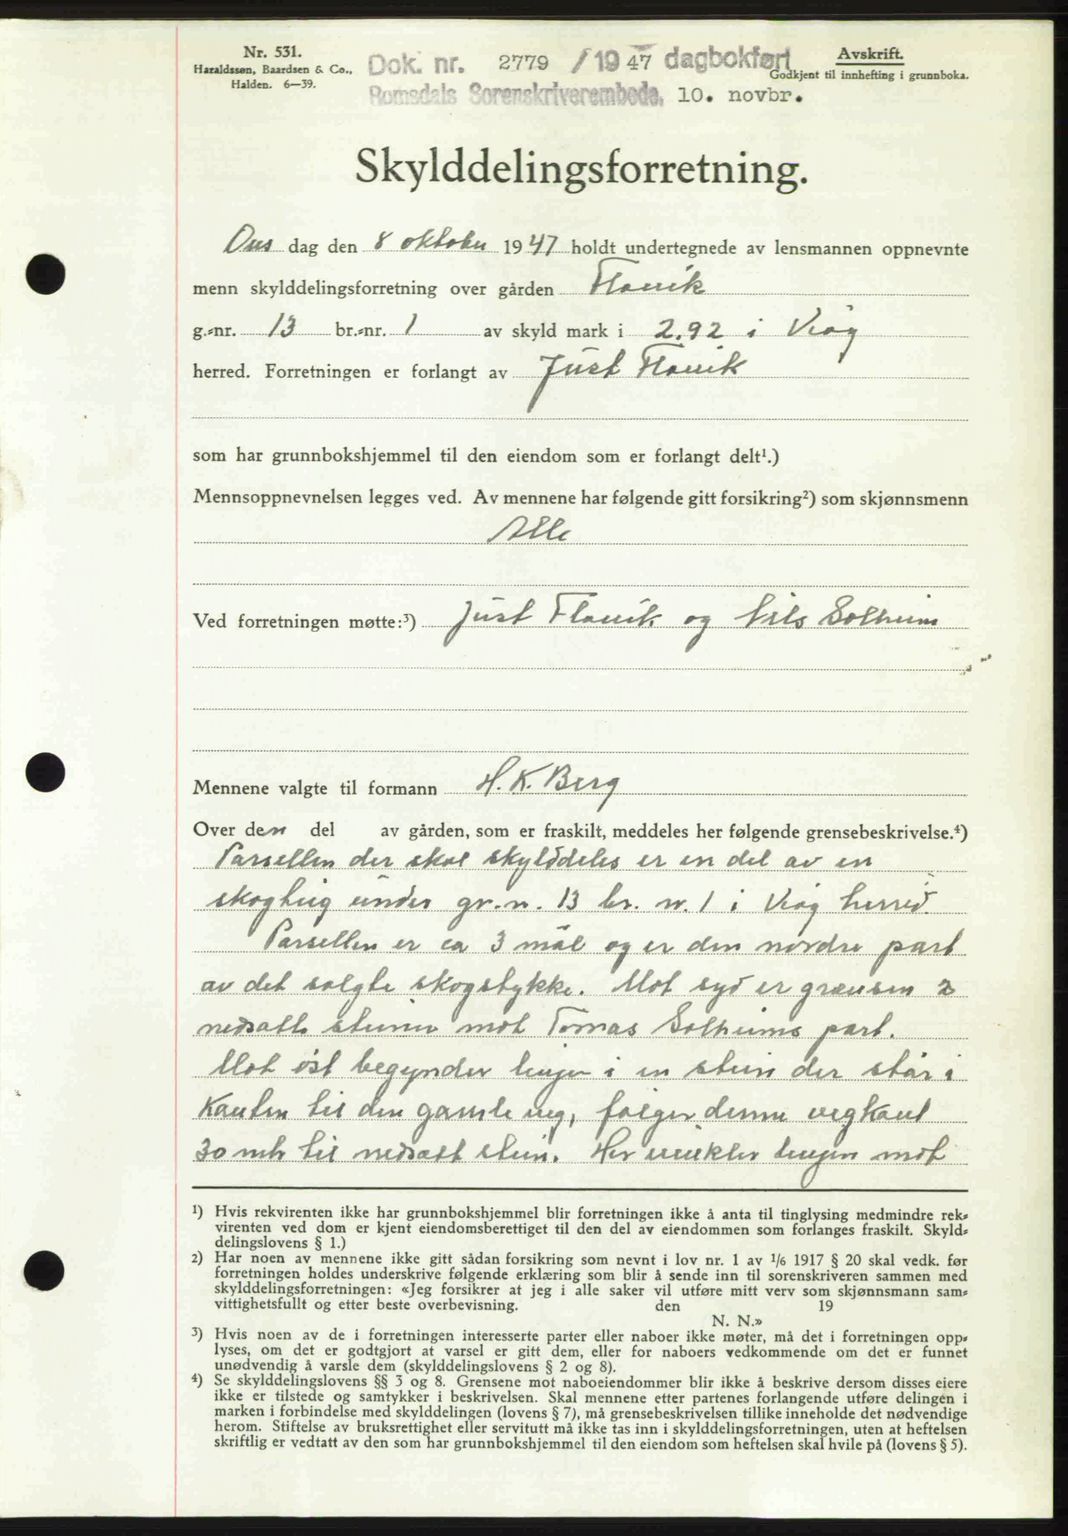 Nr. 531.
Haraldssøn, Baardsen & Co.,
Halden. 6—39.
Dok. nr. 2779 / 1947 dagbokført
Romsdals Sorenskriverembede, 10. novbr.
Avskrift.
Godkjent til innhefting i grunnboka.
Skylddelingsforretning.
Ons dag den 8 oktober 1947 holdt undertegnede av lensmannen oppnevnte
menn skylddelingsforretning over gården Flovik
g.-nr. 13 br.-nr. 1 av skyld mark i 2.92 i Veøy
herred. Forretningen er forlangt av Just Flovik
som har grunnbokshjemmel til den eiendom som er forlangt delt¹.)
Mennsoppnevnelsen legges ved. Av mennene har følgende gitt forsikring²) som skjønnsmenn
Alle
Ved forretningen møtte:³) Just Flovik og Nils Solheim
Mennene valgte til formann H. K. Berg
Over den del av gården, som er fraskilt, meddeles her følgende grensebeskrivelse.⁴)
Parsellen der skal skylddeles er en del av en
skogteig under gr.n. 13 br. n. 1 i Veøy herred.
Parsellen er ca 3 mål og er den nordre part
av det solgte skogstykke. Mot syd er grænsen 2
nedsatte steiner mot Tomas Solheims part.
Mot øst begynder linjen i en stein der står i
Kanten til den gamle veg, følger denne vegkant
30 mtr til nedsatt stein. Her vinkler linjen mot
¹) Hvis rekvirenten ikke har grunnbokshjemmel blir forretningen ikke å anta til tinglysing medmindre rek-
virenten ved dom er kjent eiendomsberettiget til den del av eiendommen som forlanges fraskilt. Skyld-
delingslovens § 1.)
²) Har noen av mennene ikke gitt sådan forsikring som nevnt i lov nr. 1 av 1/6 1917 § 20 skal vedk. før
forretningen holdes underskrive følgende erklæring som blir å sende inn til sorenskriveren sammen med
skylddelingsforretningen: «Jeg forsikrer at jeg i alle saker vil utføre mitt verv som skjønnsmann sam-
vittighetsfullt og etter beste overbevisning. den 19
N. N.»
³) Hvis noen av de i forretningen interesserte parter eller naboer ikke møter, må det i forretningen opp-
lyses, om det er godtgjort at varsel er gitt dem, eller for naboers vedkommende om det er funnet
unødvendig å varsle dem (skylddelingslovens § 2 og 8).
⁴) Se skylddelingslovens §§ 3 og 8. Grensene mot naboeiendommer blir ikke å beskrive dersom disses eiere
ikke er tilstede og samtykker i beskrivelsen. Skal mennene etter partenes forlangende utføre delingen i
marken i forbindelse med skylddelingen (lovens § 7), må grensebeskrivelsen tillike inneholde det nødvendige
herom. Stiftelse av bruksrettighet eller servitutt må ikke tas inn i skylddelingsforretningen, uten at heftelsen
skriftlig er vedtatt av den som har grunnbokshjemmel til den eiendom som heftelsen skal hvile på (lovens § 5).